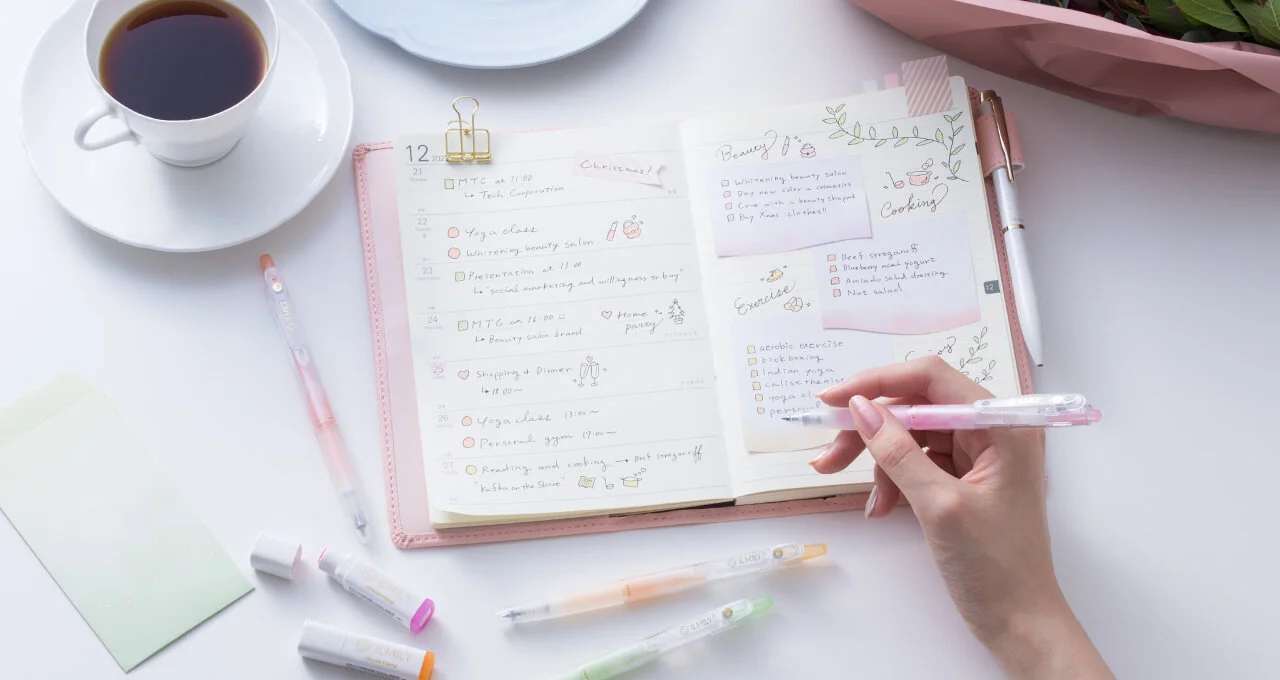 12
21
MTG at 11:00
↳ Tech Corporation
Christmas!
22
Yoga class
Whitening beauty salon
23
Presentation at 13:00
↳ "social marketing and willingness to buy"
24
MTG at 16:00
↳ Beauty salon brand
Home
party
25
Shopping & Dinner
↳ 18:00~
26
Yoga class 13:00~
Personal gym 19:00~
27
Reading and cooking → Beef stroganoff
"Kafka on the Shore"
Beauty
Whitening beauty salon
Buy new color a cosmetics
Come with a beauty shapat
Buy Xmas clothes!!
Cooking
Beef stroganoff
Blueberry acai yogurt
Avocado salad dressing
Nut salad
12
Exercise
aerobic exercise
kickboxing
Indian yoga
calisthenics
yoga cl
person
ILMILY
ILMILY
ILMILY